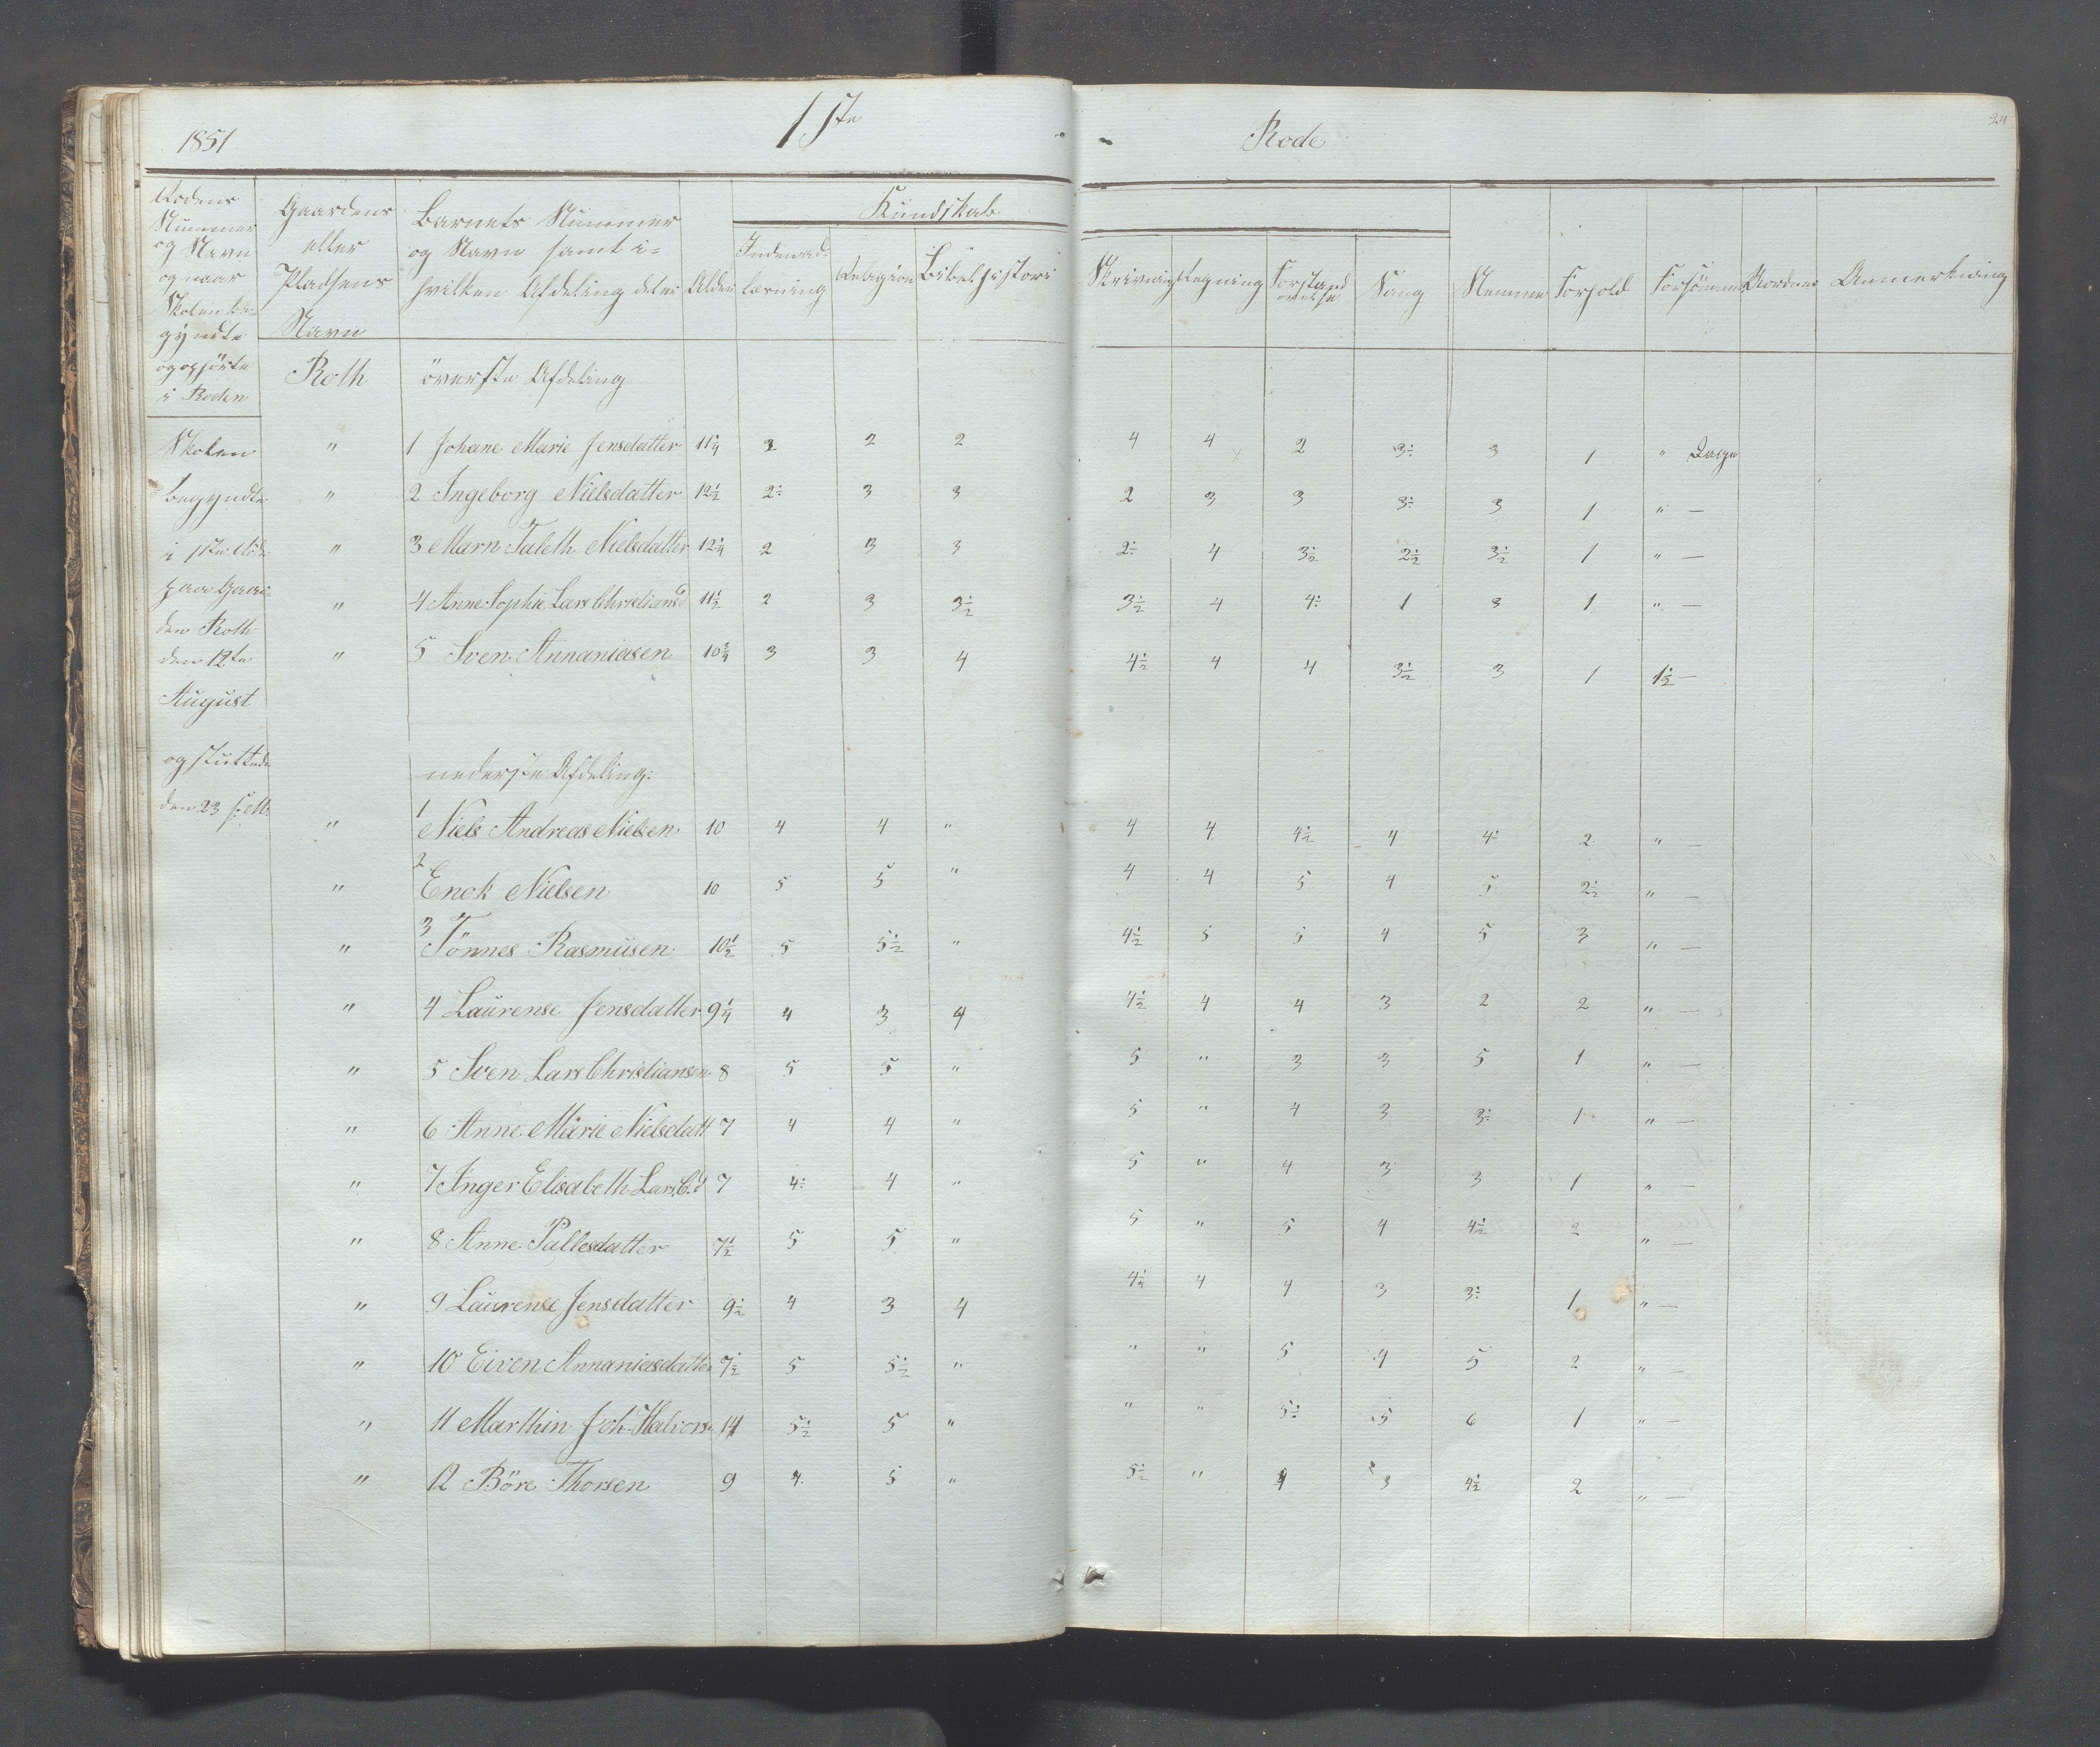 1851
1ste
Rode
24
Rodens Nummer og Navn og naar Skolen begyndte og ophörte i Roden
Gaardens eller Pladsens Navn
Barnets Nummer og Navn samt i hvilken Afdeling det er
Alder
Kundskab
Indenadlæsning
Religion
Bibelhistori
Skrivning
Regning
Forstand
Sang
Nemme
Forhold
Forsömmer
Anmerkning
Roth överste Afdeling
Skolen " 1 Johane Marie Jensdatter 11 1/4 2 2 2 4 4 2 3÷ 3 1 " Dage
begyndte " 2 Ingeborg Nielsdatter 12 1/2 2÷ 3 3 2 3 3 3÷ 3 1 " —
i 1ste Rode " 3 Marn Taleth Nielsdatter 12 1/4 2 3 3 2÷ 4 3 1/2 2 1/2 3 1/2 1 " —
paa Gaarden Roth " 4 Anne Sophie Lars Christiansd 11 1/2 2 3 3 1/2 3 1/2 4 4÷ 1 3 1 " —
den 12te " 5 Sven Annaniasen 10 3/4 3 3 4 4 1/2 4 4 3 1/2 3 1 1 1/2 —
August
og sluttede nederste Afdeling:
den 23 s. M. " 1 Niels Andreas Nielsen 10 4 4 " 4 4 4 1/2 4 4÷ 2 " —
" 2 Enok Nielsen 10 5 5 " 4 4 5 4 5 2 1/2 " —
" 3 Tönnes Rasmusen 10 1/2 5 5 1/2 " 4 1/2 5 5 4 5 3 " —
" 4 Laurense Jensdatter 9 1/4 4 3 4 4 1/2 4 4 3 2 2 " —
" 5 Sven Lars Christiansen 8 5 5 " 5 " 3 3 5 1 " —
" 6 Anne Marie Nielsdatt 7 4 4 " 5 " 4 3 3÷ 1 " —
" 7 Inger Elisabeth Lars C.d 7 4÷ 4 " 5 " 4 3 3 1 " —
" 8 Anne Pallesdatter 7 1/2 5 5 " 5 " 5 4 4 1/2 2 " —
" 9 Laurense Jensdatter 9 1/2 4 3 4 4 1/2 4 4 3 3÷ 1 " —
" 10 Eiven Annaniasdatter 7 1/2 5 5 1/2 " " " 5 4 5 2 " —
" 11 Marthin Joh. Halvors 14 5 1/2 5 " " " 5÷ 5 6 1 " —
" 12 Böre Thorsen 9 4 5 " 5 1/2 " 4 3 4 1/2 2 " —